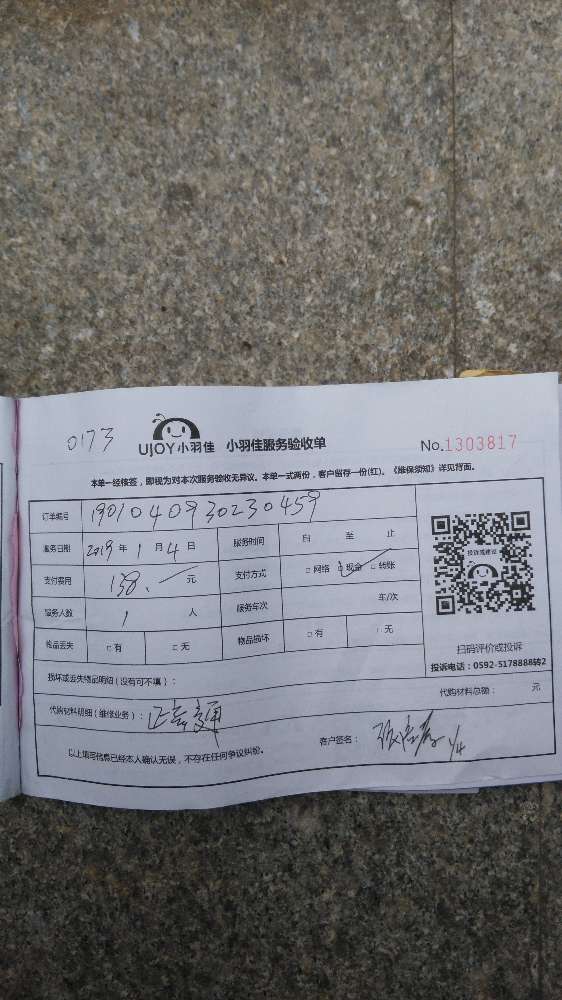 0173
UJOY小羽佳 小羽佳服务验收单 No.1303817
本单一经核签，即视为对本次服务验收无异议。本单一式两份，客户留存一份(红)。《维保须知》详见背面。
订单编号 1901040930230459
服务日期 2019年1月4日 服务时间 自 至 止
支付费用 158. 元 支付方式 □网络 □现金 □转账
服务人数 1 人 服务车次 车/次
物品丢失 □有 □无 物品损坏 □有 □无
投诉或建议
扫码评价或投诉
投诉电话：0592-5178888转2
损坏或丢失物品明细(没有可不填)：
代购材料明细(维修业务)： 代购材料总额： 元
以上填写信息已经本人确认无误，不存在任何争议纠纷。 客户签名： 1/4